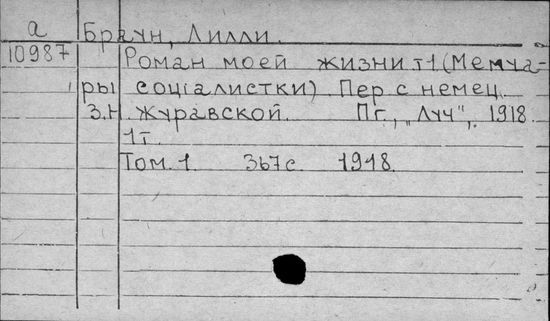 а Браун, Лилли.
10987 Роман моей жизни т1 (Мемуа-
ры социалистки) Пер с немец.
З.Н. Журавской. Пг., „Луч", 1918.
1т.
Том. 1. 367с. 1918.